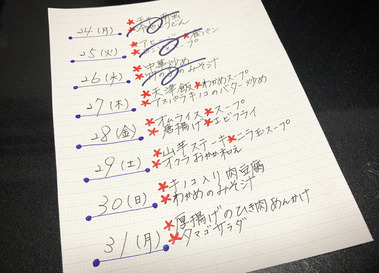 24(月)
うどん
25(火)
*スープ *食パン
26(水)
*中華炒め
のみそ汁
27(木)
*天津飯 *わかめスープ
*アスパラキノコのバター炒め
28(金)
*オムライス *スープ
*唐揚げ *エビフライ
29(土)
*山芋ステーキ *ニラ玉スープ
*オクラおかか和え
30(日)
*キノコ入り肉豆腐
*わかめのみそ汁
31(月)
*厚揚げのひき肉あんかけ
*タマゴサラダ